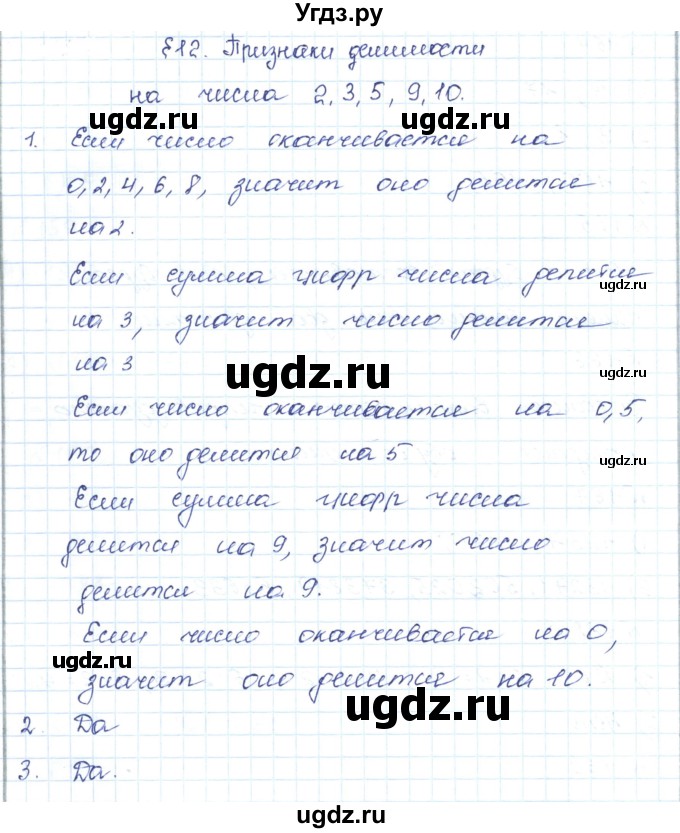 Угдз.ру
§12. Признаки делимости
на числа 2, 3, 5, 9, 10.
ugdz.ru ugdz.ru
1. Если число оканчивается на
0, 2, 4, 6, 8, значит оно делится
ugdz.ru
на 2.
Если сумма цифр числа делится
ugdz.ru
на 3, значит число делится
на 3
ugdz.ru ugdz.ru
Если число оканчивается на 0, 5,
то оно делится на 5
ugdz.ru
Если сумма цифр числа
делится на 9, значит число
делится на 9.
Если число оканчивается на 0,
ugdz.ru
значит оно делится на 10.
ugdz.ru
2. Да
3. Да.
ugdz.ru